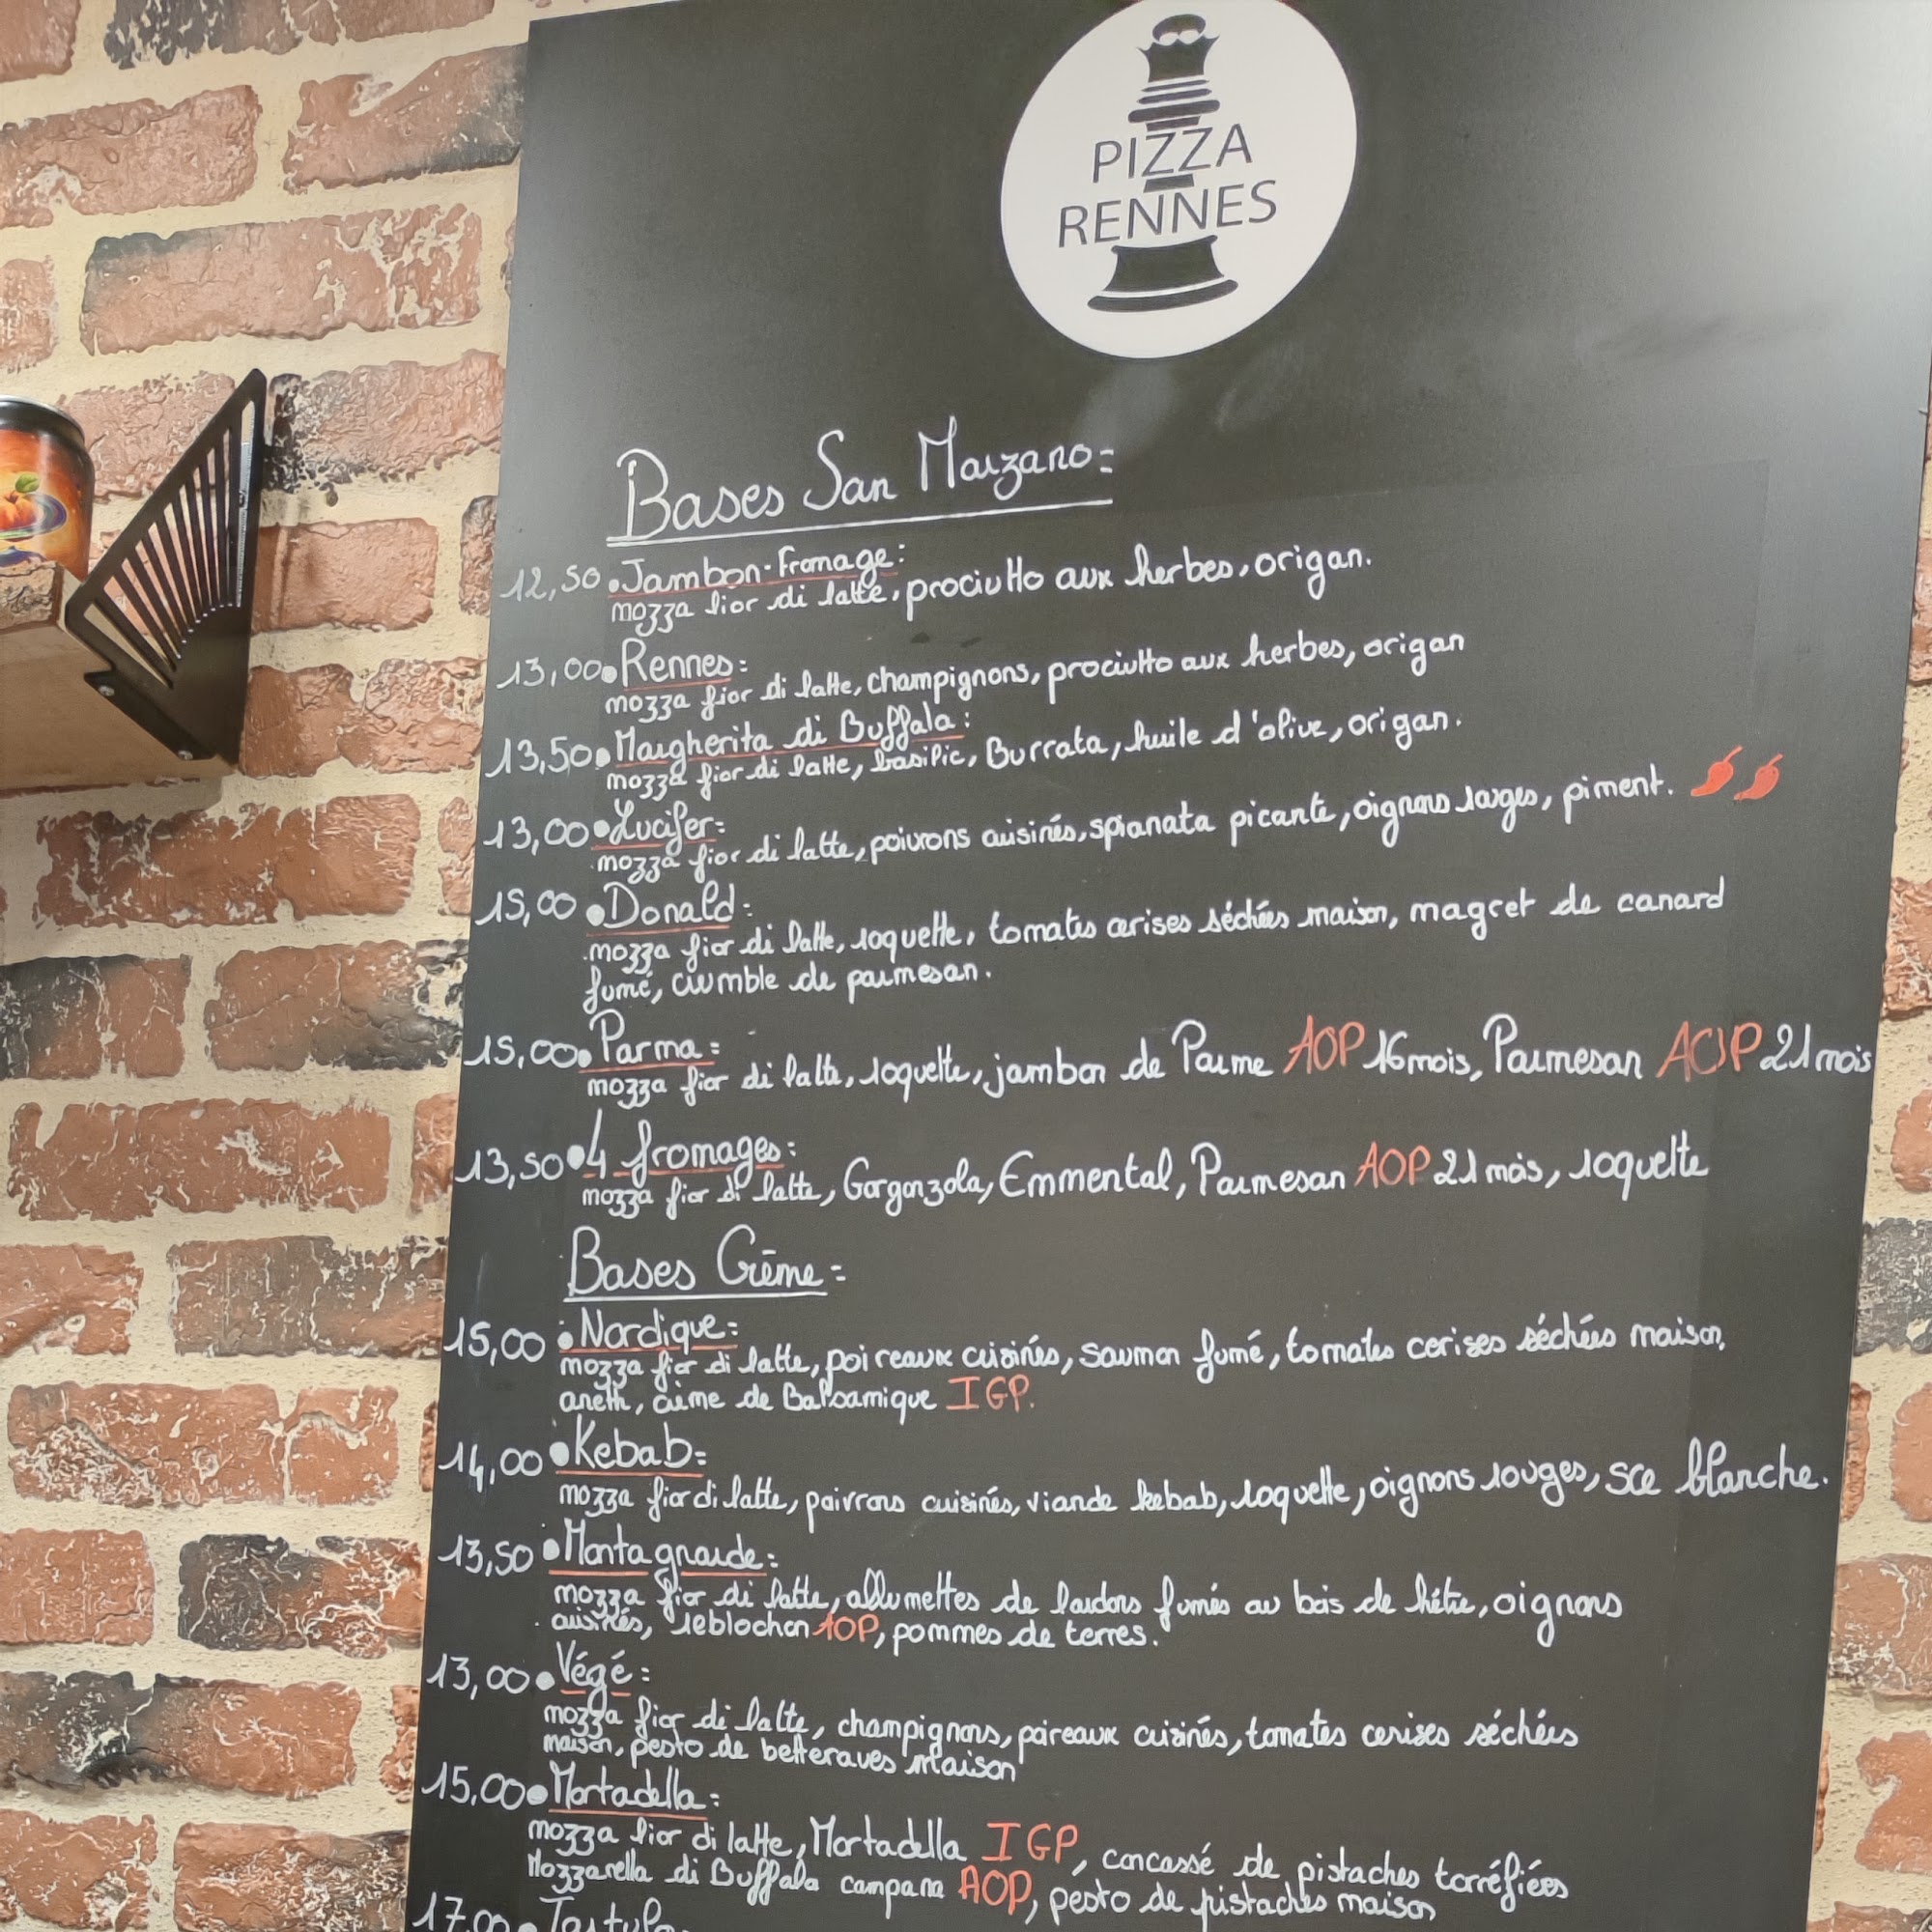 PIZZA
RENNES
Bases San Marzano:
12,50 • Jambon-Fromage:
mozza fior di latte, prociutto aux herbes, origan.
13,00 • Rennes:
mozza fior di latte, champignons, prociutto aux herbes, origan
13,50 • Margherita di Buffala:
mozza fior di latte, basilic, Burrata, huile d'olive, origan.
13,00 • Lucifer:
mozza fior di latte, poivrons cuisinés, spianata picante, oignons rouges, piment.
15,00 • Donald:
mozza fior di latte, roquette, tomates cerises séchées maison, magret de canard
fumé, crumble de parmesan.
15,00 • Parma:
mozza fior di latte, roquette, jambon de Parme AOP 16 mois, Parmesan AOP 21 mois
13,50 • 4 fromages:
mozza fior di latte, Gorgonzola, Emmental, Parmesan AOP 21 mois, roquette
Bases Crème:
15,00 • Nordique:
mozza fior di latte, poireaux cuisinés, saumon fumé, tomates cerises séchées maison,
aneth, crème de Balsamique IGP.
14,00 • Kebab:
mozza fior di latte, poivrons cuisinés, viande kebab, roquette, oignons rouges, sce blanche.
13,50 • Montagnarde:
mozza fior di latte, allumettes de lardons fumés au bois de hêtre, oignons
cuisinés, reblochon AOP, pommes de terres.
13,00 • Végé:
mozza fior di latte, champignons, poireaux cuisinés, tomates cerises séchées
maison, pesto de betteraves maison
15,00 • Mortadella:
mozza fior di latte, Mortadella IGP, concassé de pistaches torréfiées
Mozzarella di Buffala campana AOP, pesto de pistaches maison
17,00 •